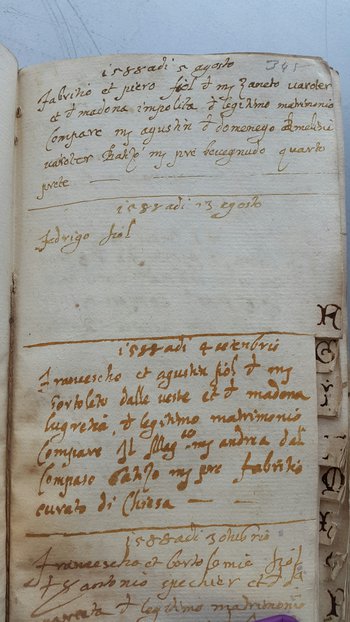 1588 adi 5 agosto
345
fabritio et piero fiol d mj Zaneto varoter
et d madona impolita d legitimo matrimonio
Compare mj agustin d domenego
varoter Batizo mj pre benegnudo quarto
prete
1588 adi 23 agosto
fedrigo fiol
1588 adi 4 setenbrio
francescho et agustin fiol d mj
bortolato dalle veste et d madona
lugretia d legitimo matrimonio
Compare Il Mag.co mj andrea dal
Compaso Batizo mj pre fabritio
curato di Chiesa
1588 adi 3 otubrio
francescho et bortolamio fiol
d antonio spechier et d
d legitimo matrimonio
A
G